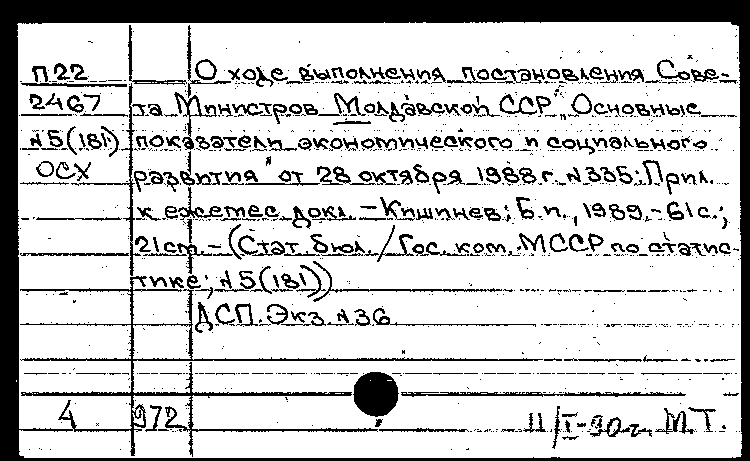 П22 О ходе выполнения постановления Сове-
2467 та Министров Молдавской ССР „Основные
N5(181) показатели экономического и социального
ОСХ развития" от 28 октября 1988г. N335: Прил.
к ежемес докл. – Кишинев; Б.п., 1989.-61с.;
21см. – (Стат. бюл. / Гос. ком. МССР по статис-
тике; N5(181))
ДСП. Экз. N36
4 972 11/I-90г. М.Т.